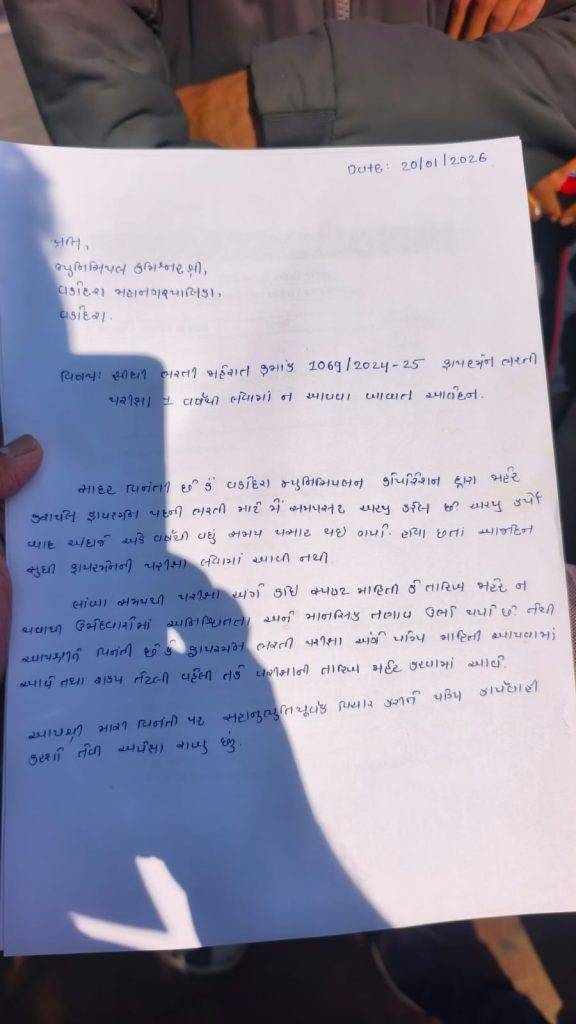 Date: 20/01/2026
પ્રતિ,
મ્યુનિસિપલ કમિશ્નરશ્રી,
વડોદરા મહાનગરપાલિકા,
વડોદરા.
વિષય: સીધી ભરતી જાહેરાત ક્રમાંક 1069/2024-25 ફાયરમેન ભરતી
પરીક્ષા 1 વર્ષથી લેવામાં ન આવવા બાબત આવેદન.
સાદર વિનંતી છે કે વડોદરા મ્યુનિસિપલ કોર્પોરેશન દ્વારા જાહેર
કરાયેલ ફાયરમેન પદની ભરતી માટે મેં સમયસર અરજી કરેલ છે. અરજી કર્યા
બાદ અંદાજે એક વર્ષથી વધુ સમય પસાર થઇ ગયો. હોવા છતાં આજદિન
સુધી ફાયરમેનની પરીક્ષા લેવામાં આવી નથી.
લાંબા સમયથી પરીક્ષા અંગે કોઇ સ્પષ્ટ માહિતી કે તારીખ જાહેર ન
થવાથી ઉમેદવારોમાં અનિશ્ચિતતા અને માનસિક તણાવ ઉભો થયો છે. તેથી
આપશ્રીને વિનંતી છે કે ફાયરમેન ભરતી પરીક્ષા અંગે યોગ્ય માહિતી આપવામાં
આવે તથા શક્ય તેટલી વહેલી તકે પરીક્ષાની તારીખ જાહેર કરવામાં આવે.
આપશ્રી મારી વિનંતી પર સહાનુભૂતિપૂર્વક વિચાર કરીને યોગ્ય કાર્યવાહી
કરશો તેવી અપેક્ષા રાખું છું.